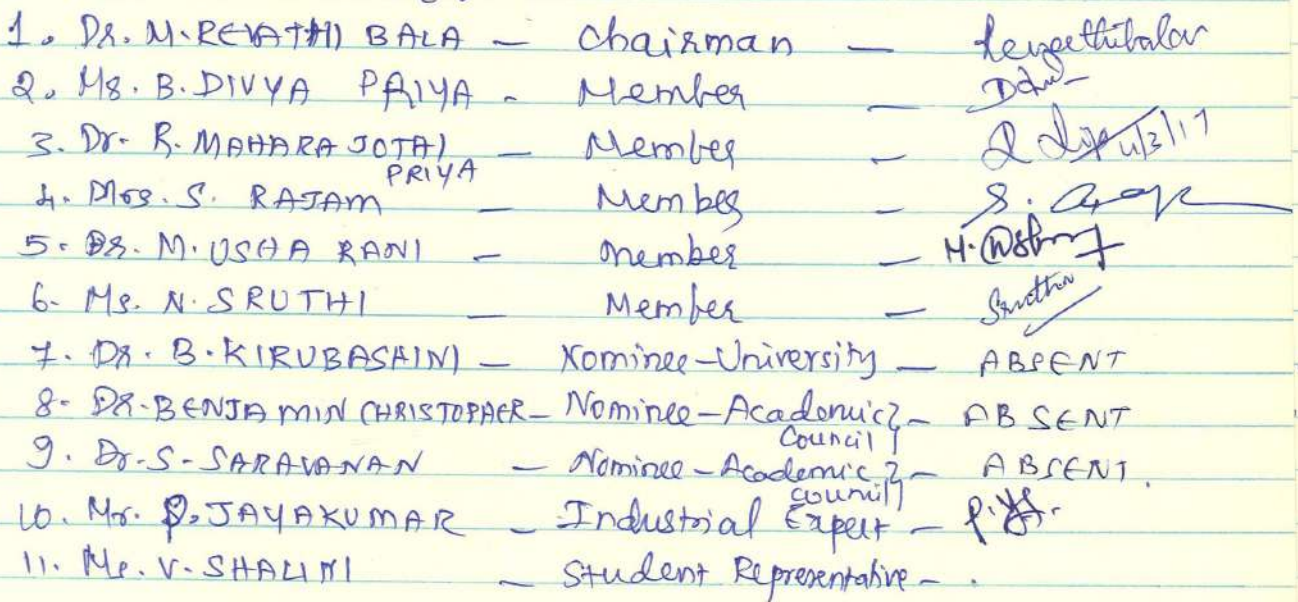 1. Dr. M. REVATHI BALA - Chairman - Revathibala
2. Ms. B. DIVYA PRIYA - Member -
3. Dr. R. MAHARA JOTHI - Member -
PRIYA
4. Mrs. S. RAJAM - Member - S.
5. Dr. M. USHA RANI - Member - M.
6. Ms. N. SRUTHI - Member - Sruthi
7. Dr. B. KIRUBASHINI - Nominee-University - ABSENT
8. Dr. BENJAMIN CHRISTOPHER - Nominee-Academic - ABSENT
Council
9. Dr. S. SARAVANAN - Nominee-Academic - ABSENT.
Council
10. Mr. P. JAYAKUMAR - Industrial Expert - P.
11. Ms. V. SHALINI - Student Representative - .